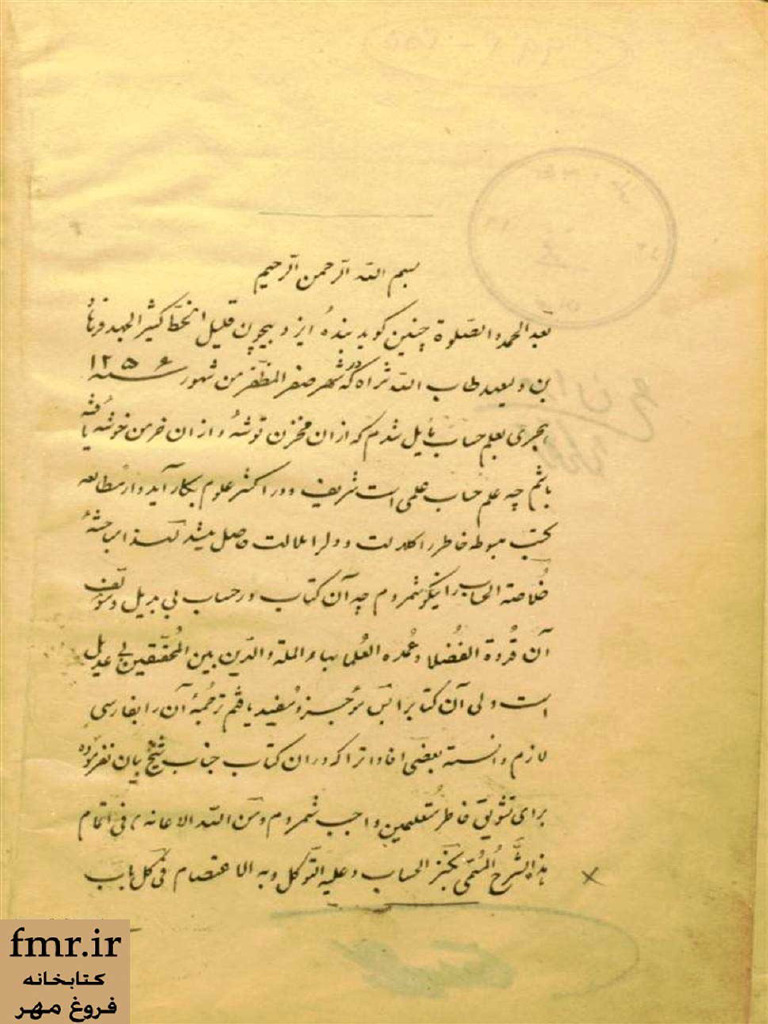 بسم الله الرحمن الرحیم
بعد الحمد و الصلوة چنین گوید بندهٔ ایزد بیچون قلیل الخط کثیر الجهد فرهاد
بن ولیعهد طاب الله ثراه که در شهر صفر المظفر من شهور سنه ۱۲۵۶
هجری بعلم حساب مایل شدم که از ان مخزن توشهٔ و از ان خرمن خوشهٔ یافته
باشم چه علم حساب علمی است شریف و در اکثر علوم بکار آید و از مطالعه
کتب مبسوطه خاطر را کلالت و دل را ملالت حاصل میشد لهذا
خلاصة الحساب را نیکو شمردم چه آن کتاب در حساب بی بدیل و مؤلف
آن قدوة الفضلا و عمدة العلما بهاء الملة و الدین بین المحققین بی عدیل
است ولی آن کتاب را بس موجز و مفید یافتم ترجمهٔ آن را بفارسی
لازم دانسته بعضی افادات را که در ان کتاب جناب شیخ بیان نفرموده
برای تشویق خاطر متعلمین واجب شمردم و من الله الاعانه فی اتمام
هذا الشرح المسمی بکنز الحساب و علیه التوکل و به الاعتصام فی کل باب
fmr.ir
کتابخانه
فروغ مهر